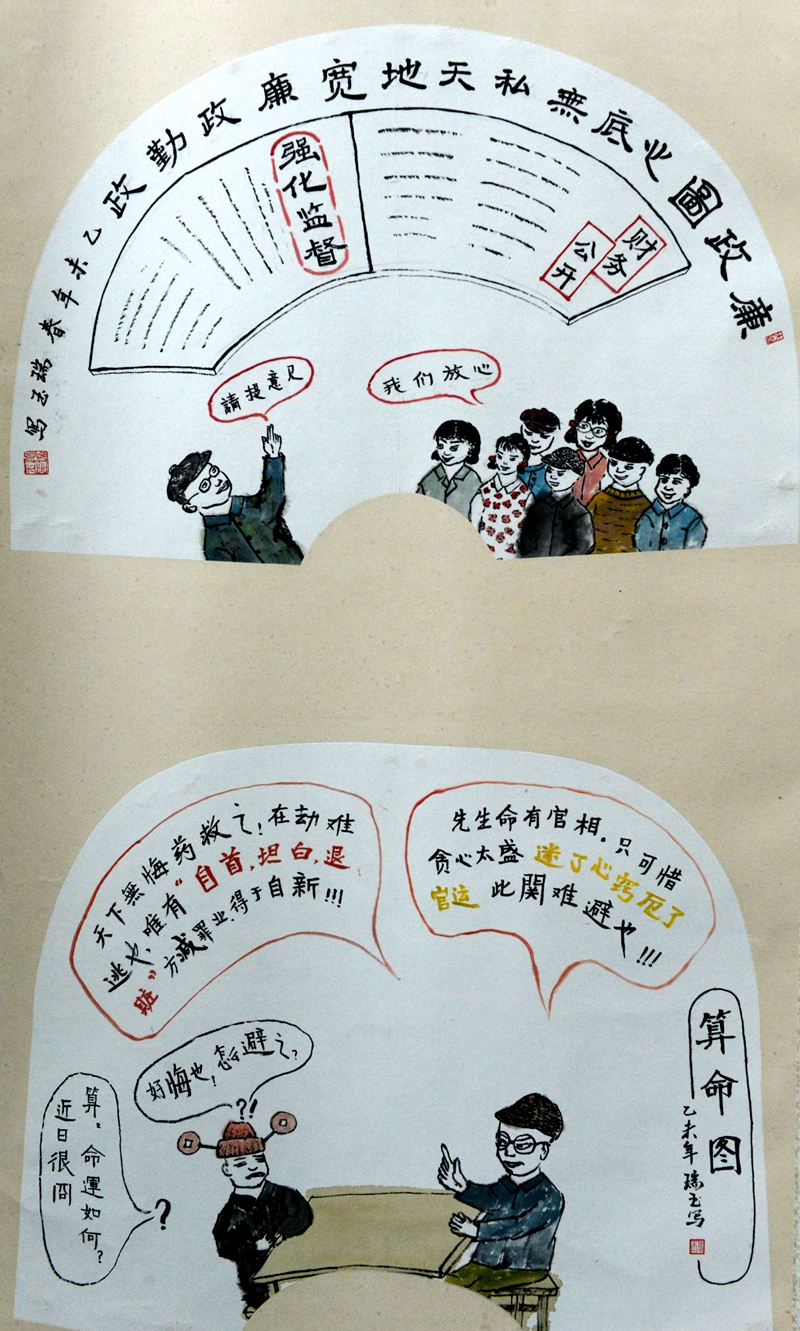 廉政圖
心底無私天地宽
廉政勤政
乙未年春瑞玉写
强化监督
财务
公开
請提意见
我们放心
先生命有官相。只可惜
贪心太盛迷了心窍厄了
官运此関难避也!!!
天下無悔药救之!在劫难
逃也,唯有"自首,坦白,退
赃"方减罪业,得于自新!!!
好悔也!怎么避之?
?!
算算命運如何?
近日很闷
?
算命图
乙未年瑞玉写